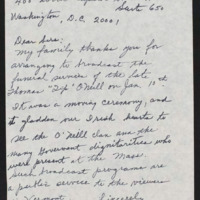 Suite 650
Washington, D.C. 20001
Dear Sirs:
My family thanks you for
arranging to broadcast the
funeral service of the late
Thomas "Tip" O'Neill on Jan 10th
It was a moving ceremony, and
it gladden our Irish hearts to
see the O'Neill clan and the
many Government dignitaries who
were present at the Mass.
Such broadcast programs are
a public service to the viewers
Sincerely